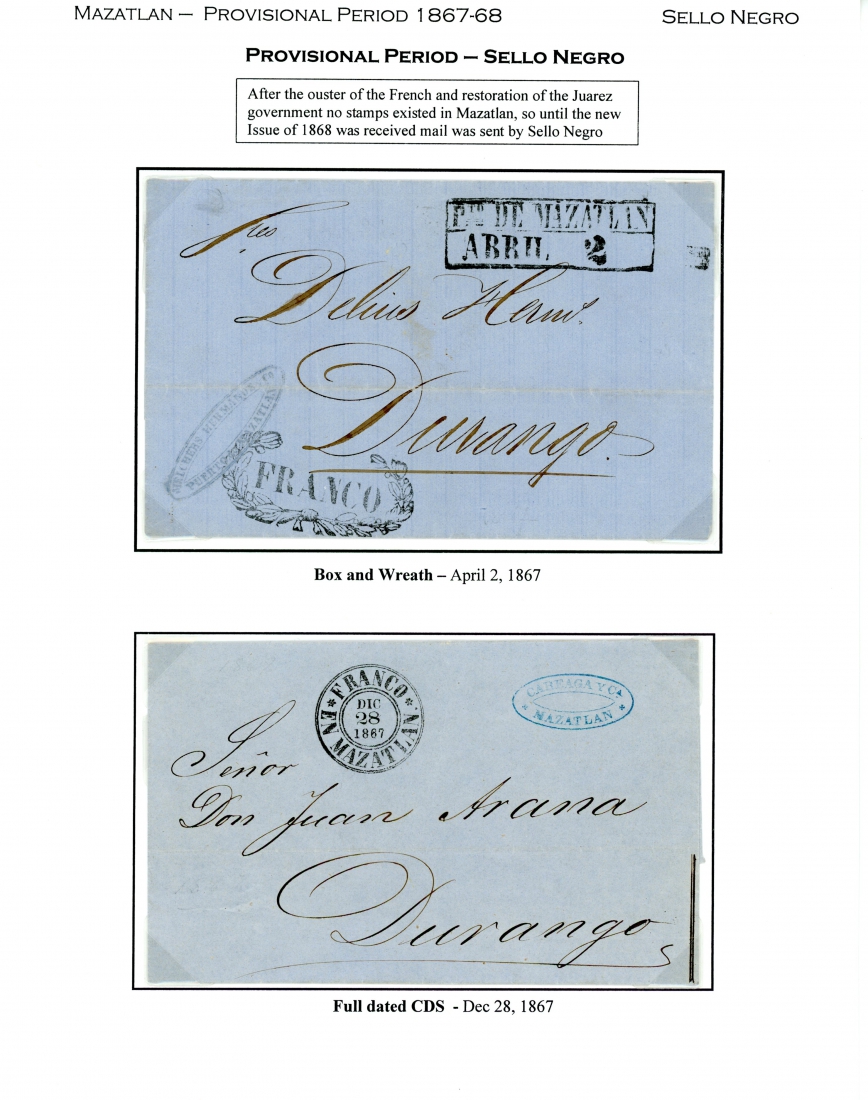 MAZATLAN – PROVISIONAL PERIOD 1867-68
SELLO NEGRO
PROVISIONAL PERIOD – SELLO NEGRO
After the ouster of the French and restoration of the Juarez
government no stamps existed in Mazatlan, so until the new
Issue of 1868 was received mail was sent by Sello Negro
Pto DE MAZATLAN
ABRIL 2
Sres
Delius Herms.
Durango.
HERMANOS
PUERTO MAZATLAN
FRANCO
Box and Wreath – April 2, 1867
FRANCO
DIC
28
1867
EN MAZATLAN
CAREAGA Y Ca
MAZATLAN
Señor
Don Juan Arana
Durango
Full dated CDS - Dec 28, 1867